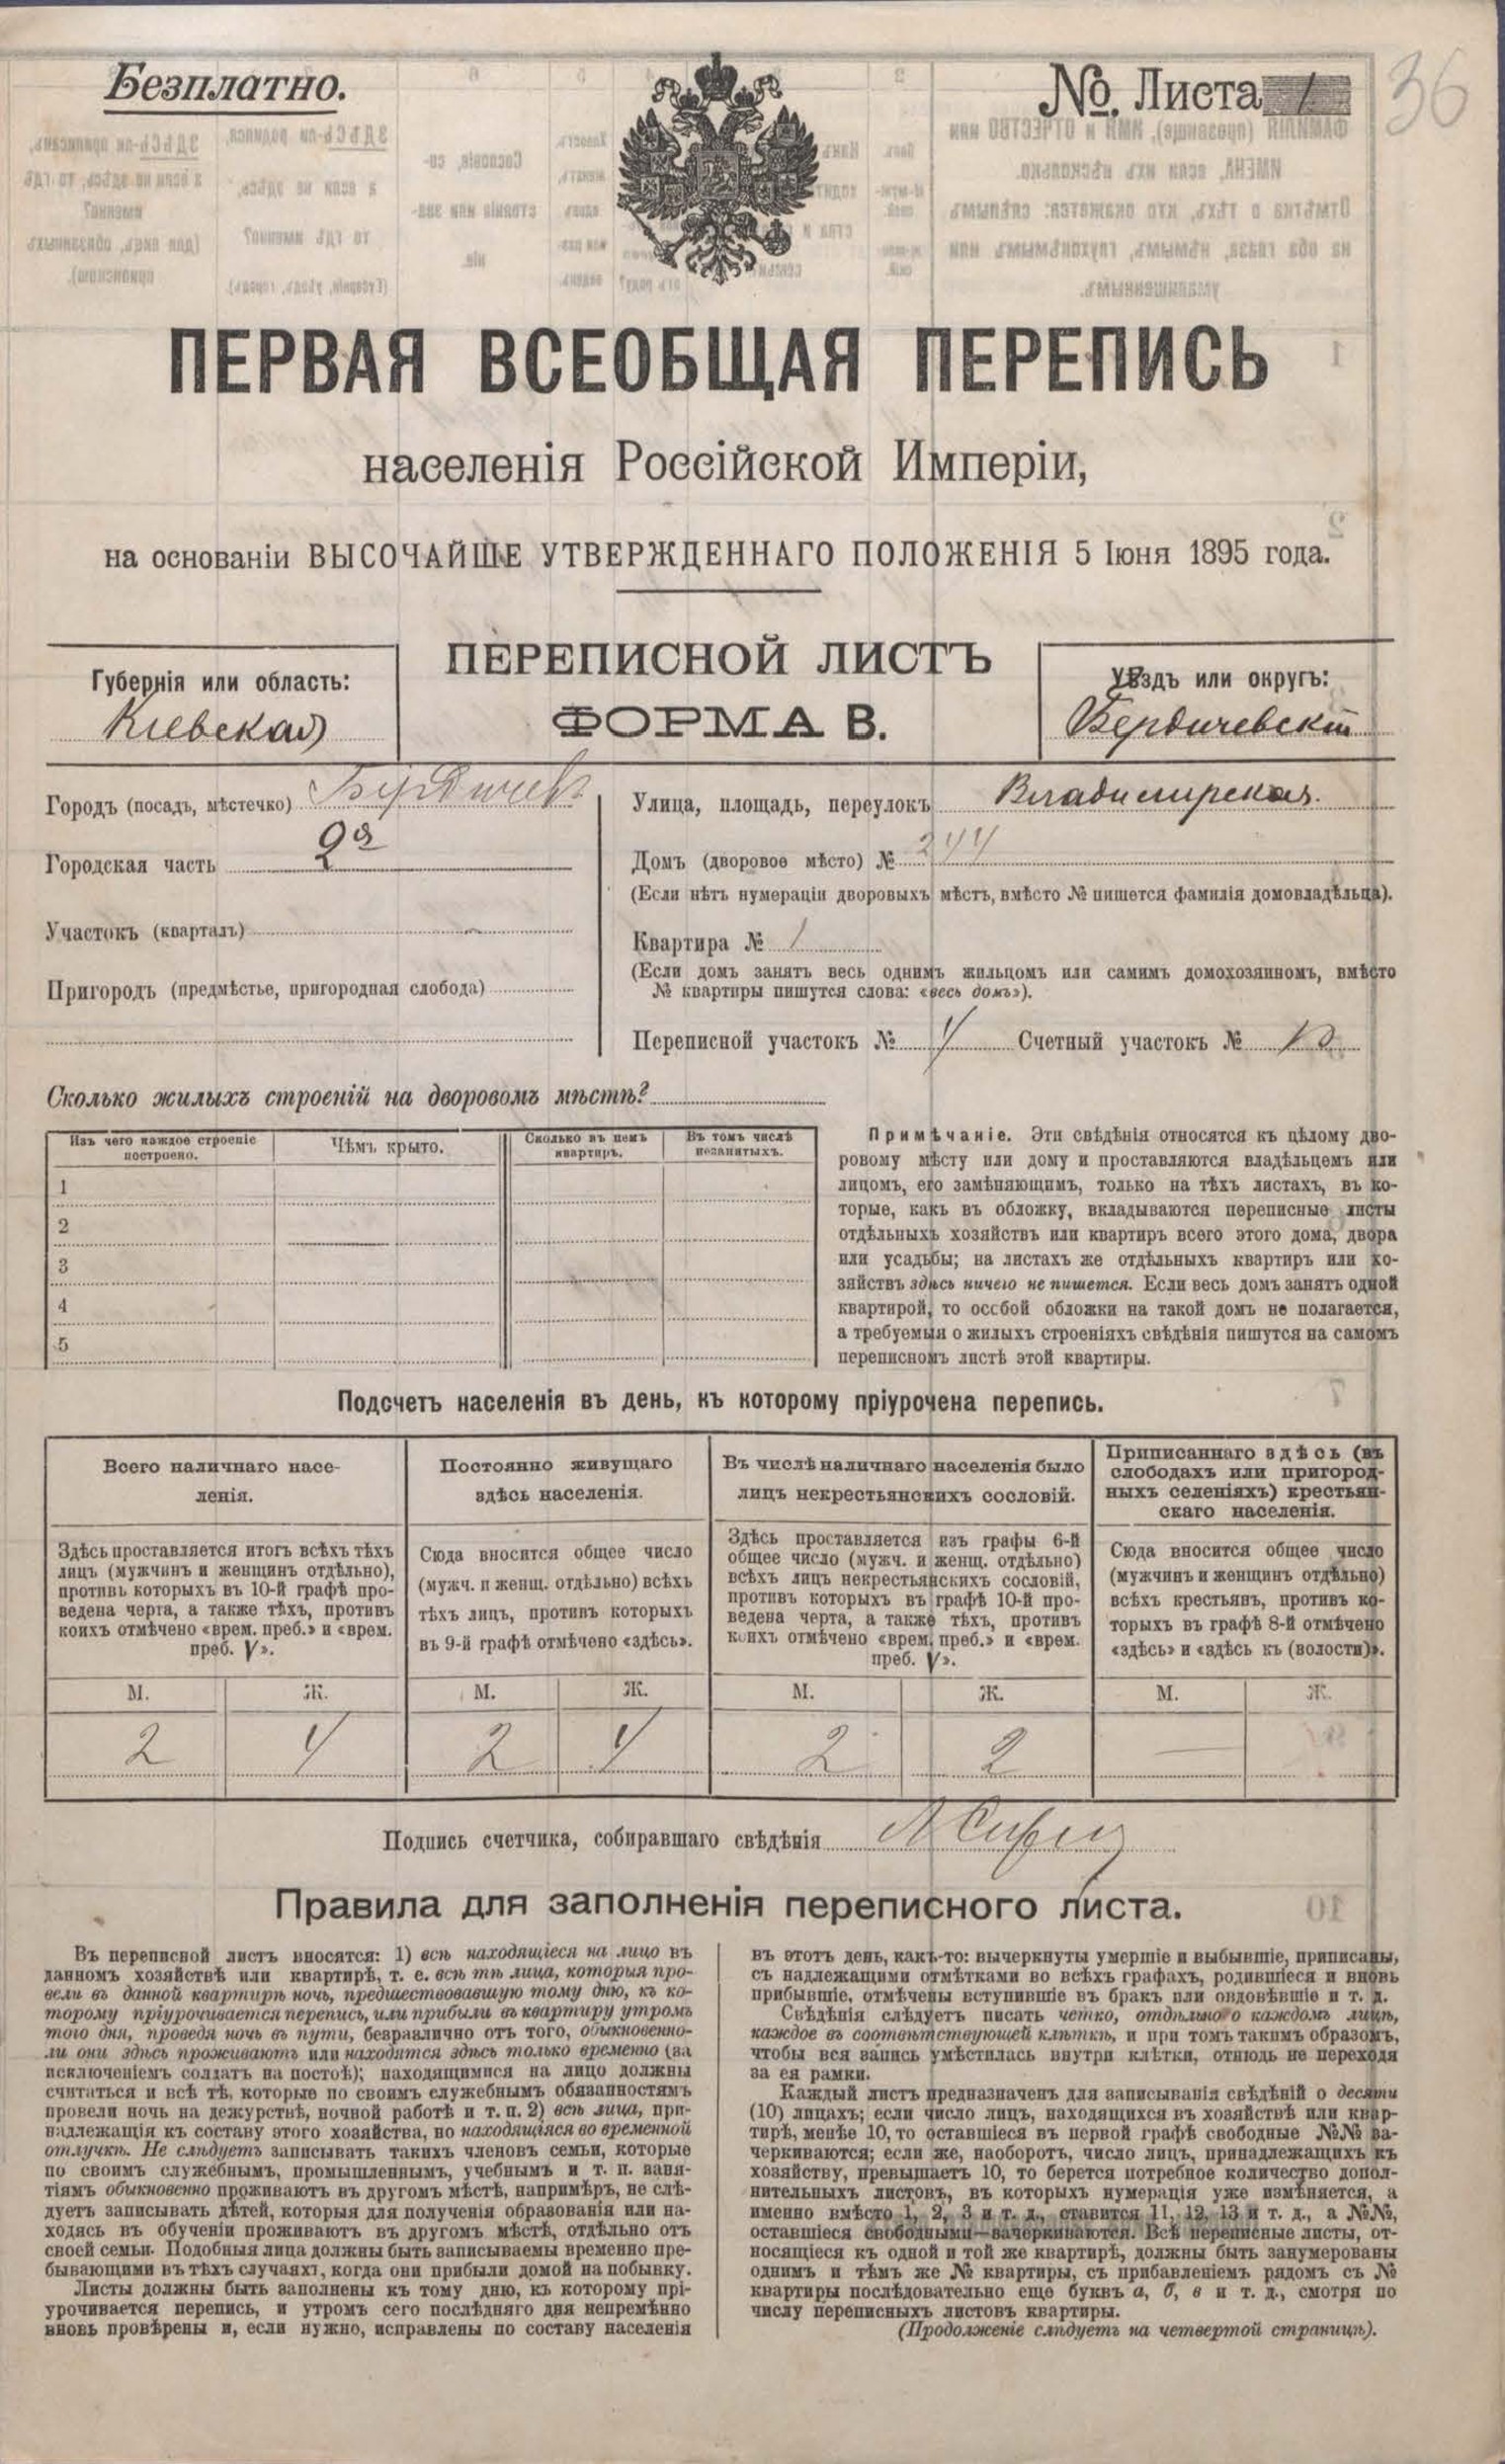 Безплатно.
№ Листа 1
36
ПЕРВАЯ ВСЕОБЩАЯ ПЕРЕПИСЬ
населенія Россійской Имперіи,
на основаніи ВЫСОЧАЙШЕ УТВЕРЖДЕННАГО ПОЛОЖЕНІЯ 5 Іюня 1895 года.
ПЕРЕПИСНОЙ ЛИСТЪ
ФОРМА В.
Губернія или область:
Кіевская
Уѣздъ или округъ:
Бердичевскій
Городъ (посадъ, мѣстечко) Бердичевъ
Городская часть 2я
Участокъ (кварталъ)
Пригородъ (предмѣстье, пригородная слобода)
Улица, площадь, переулокъ Владимирская.
Домъ (дворовое мѣсто) № 244
(Если нѣтъ нумераціи дворовыхъ мѣстъ, вмѣсто № пишется фамилія домовладѣльца).
Квартира № 1
(Если домъ занятъ весь однимъ жильцомъ или самимъ домохозяиномъ, вмѣсто
№ квартиры пишутся слова: «весь домъ»).
Переписной участокъ № 4 Счетный участокъ № 10
Сколько жилыхъ строеній на дворовомъ мѣстѣ?
Изъ чего каждое строеніе
построено.
Чѣмъ крыто.
Сколько въ немъ
квартиръ.
Въ томъ числѣ
незанятыхъ.
1
2
3
4
5
Примѣчаніе. Эти свѣдѣнія относятся къ цѣлому дво-
ровому мѣсту или дому и проставляются владѣльцемъ или
лицомъ, его замѣняющимъ, только на тѣхъ листахъ, въ ко-
торые, какъ въ обложку, вкладываются переписные листы
отдѣльныхъ хозяйствъ или квартиръ всего этого дома, двора
или усадьбы; на листахъ же отдѣльныхъ квартиръ или хо-
зяйствъ здѣсь ничего не пишется. Если весь домъ занятъ одной
квартирой, то особой обложки на такой домъ не полагается,
а требуемыя о жилыхъ строеніяхъ свѣдѣнія пишутся на самомъ
переписномъ листѣ этой квартиры.
Подсчетъ населенія въ день, къ которому пріурочена перепись.
Всего наличнаго насе-
ленія.
Здѣсь проставляется итогъ всѣхъ тѣхъ
лицъ (мужчинъ и женщинъ отдѣльно),
противъ которыхъ въ 10-й графѣ про-
ведена черта, а также тѣхъ, противъ
коихъ отмѣчено «врем. преб.» и «врем.
преб. V».
М. Ж.
2 4
Постоянно живущаго
здѣсь населенія.
Сюда вносится общее число
(мужч. и женщ. отдѣльно) всѣхъ
тѣхъ лицъ, противъ которыхъ
въ 9-й графѣ отмѣчено «здѣсь».
М. Ж.
2 4
Въ числѣ наличнаго населенія было
лицъ некрестьянскихъ сословій.
Здѣсь проставляется изъ графы 6-й
общее число (мужч. и женщ. отдѣльно)
всѣхъ лицъ некрестьянскихъ сословій,
противъ которыхъ въ графѣ 10-й про-
ведена черта, а также тѣхъ, противъ
коихъ отмѣчено «врем. преб.» и «врем.
преб. V».
М. Ж.
2 2
Приписаннаго здѣсь (въ
слободахъ или пригород-
ныхъ селеніяхъ) крестьян-
скаго населенія.
Сюда вносится общее число
(мужчинъ и женщинъ отдѣльно)
всѣхъ крестьянъ, противъ ко-
торыхъ въ графѣ 8-й отмѣчено
«здѣсь» и «здѣсь къ (волости)».
М. Ж.
—
Подпись счетчика, собиравшаго свѣдѣнія
Правила для заполненія переписного листа.
Въ переписной листъ вносятся: 1) всѣ находящіеся на лицо въ
данномъ хозяйствѣ или квартирѣ, т. е. всѣ тѣ лица, которыя про-
вели въ данной квартирѣ ночь, предшествовавшую тому дню, къ ко-
торому пріурочивается перепись, или прибыли въ квартиру утромъ
того дня, проведя ночь въ пути, безразлично отъ того, обыкновенно-
ли они здѣсь проживаютъ или находятся здѣсь только временно (за
исключеніемъ солдатъ на постоѣ); находящимися на лицо должны
считаться и всѣ тѣ, которые по своимъ служебнымъ обязанностямъ
провели ночь на дежурствѣ, ночной работѣ и т. п. 2) всѣ лица, при-
надлежащія къ составу этого хозяйства, но находящіяся во временной
отлучкѣ. Не слѣдуетъ записывать такихъ членовъ семьи, которые
по своимъ служебнымъ, промышленнымъ, учебнымъ и т. п. заня-
тіямъ обыкновенно проживаютъ въ другомъ мѣстѣ, напримѣръ, не слѣ-
дуетъ записывать дѣтей, которыя для полученія образованія или на-
ходясь въ обученіи проживаютъ въ другомъ мѣстѣ, отдѣльно отъ
своей семьи. Подобныя лица должны быть записываемы временно пре-
бывающими въ тѣхъ случаяхъ, когда они прибыли домой на побывку.
Листы должны быть заполнены къ тому дню, къ которому прі-
урочивается перепись, и утромъ сего послѣдняго дня непремѣнно
вновь провѣрены и, если нужно, исправлены по составу населенія
въ этотъ день, какъ-то: вычеркнуты умершіе и выбывшіе, приписаны,
съ надлежащими отмѣтками во всѣхъ графахъ, родившіеся и вновь
прибывшіе, отмѣчены вступившіе въ бракъ или овдовѣвшіе и т. д.
Свѣдѣнія слѣдуетъ писать четко, отдѣльно о каждомъ лицѣ,
каждое въ соотвѣтствующей клѣткѣ, и при томъ такимъ образомъ,
чтобы вся запись умѣстилась внутри клѣтки, отнюдь не переходя
за ея рамки.
Каждый листъ предназначенъ для записыванія свѣдѣній о десяти
(10) лицахъ; если число лицъ, находящихся въ хозяйствѣ или квар-
тирѣ, менѣе 10, то оставшіеся въ первой графѣ свободные №№ за-
черкиваются; если же, наоборотъ, число лицъ, принадлежащихъ къ
хозяйству, превышаетъ 10, то берется потребное количество допол-
нительныхъ листовъ, въ которыхъ нумерація уже измѣняется, а
именно вмѣсто 1, 2, 3 и т. д., ставится 11, 12, 13 и т. д., а №№,
оставшіеся свободными—зачеркиваются. Всѣ переписные листы, от-
носящіеся къ одной и той же квартирѣ, должны быть занумерованы
однимъ и тѣмъ же № квартиры, съ прибавленіемъ рядомъ съ №
квартиры послѣдовательно еще буквъ а, б, в и т. д., смотря по
числу переписныхъ листовъ квартиры.
(Продолженіе слѣдуетъ на четвертой страницѣ).